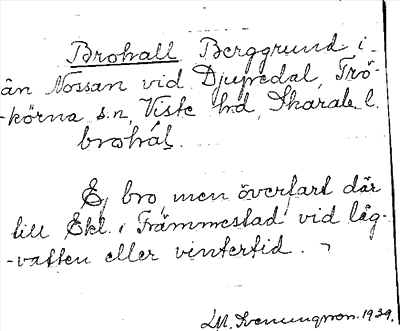 Brohall Berggrund i
ån Nossan vid Djupedal, Frö-
-körna sn, Viste hd, Skarab. l.
brohál.
Ej bro, men överfart där
till Ekl. i Främmestad vid låg-
-vatten eller vintertid.
LM. Svenungsson. 1939.